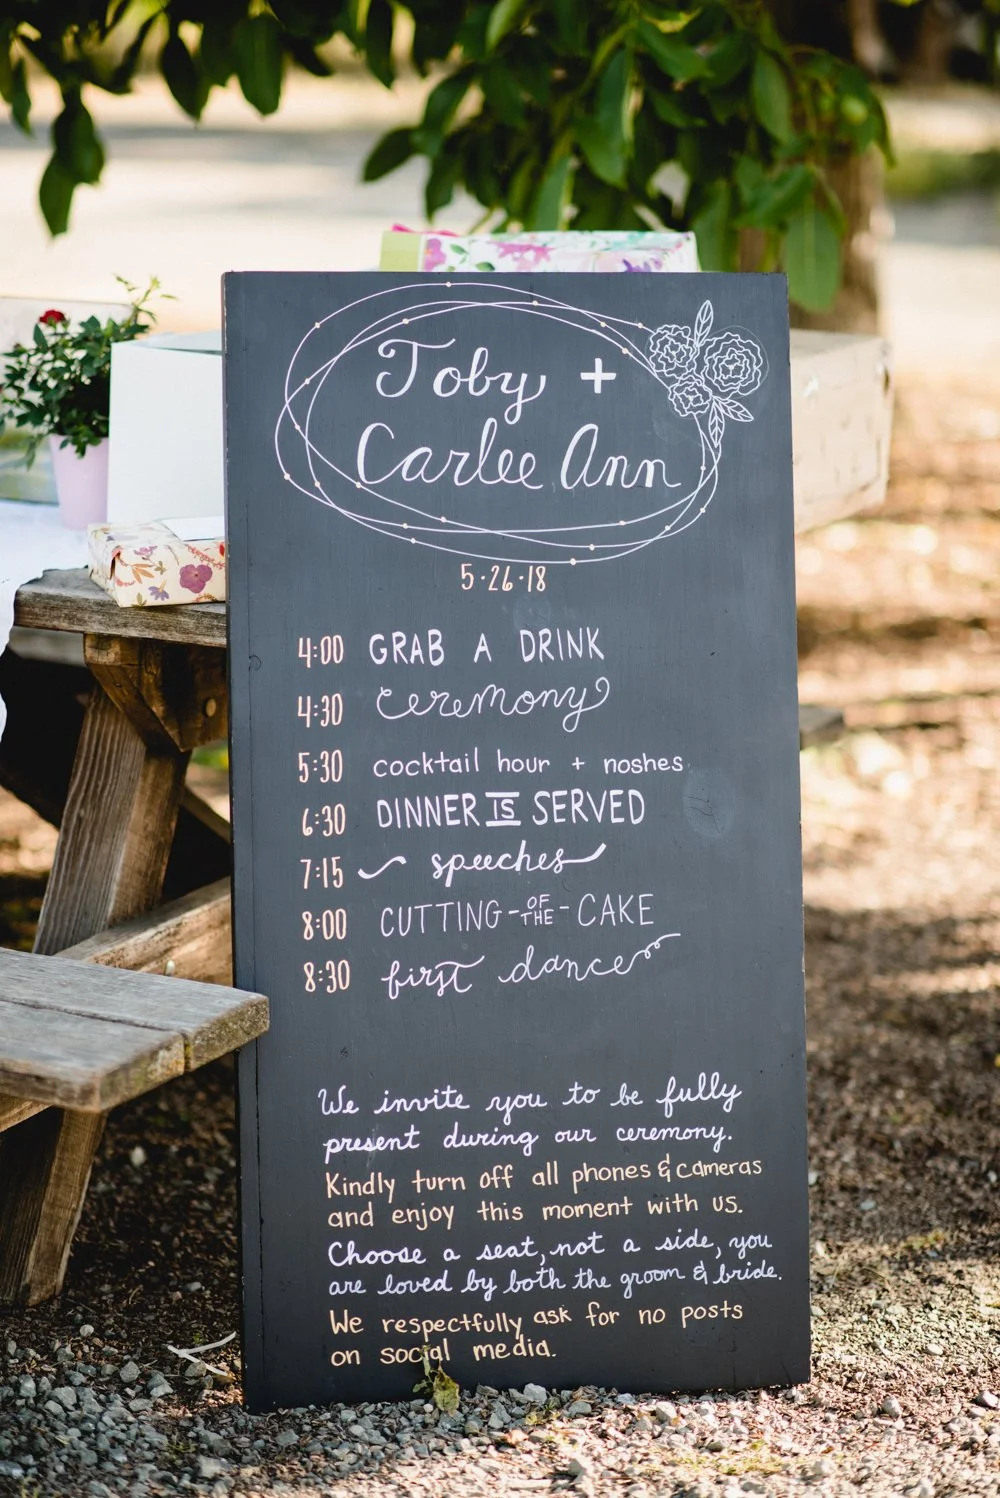 Toby +
Carlee Ann
5·26·18
4:00 GRAB A DRINK
4:30 ceremony
5:30 cocktail hour + noshes
6:30 DINNER IS SERVED
7:15 speeches
8:00 CUTTING-OF THE-CAKE
8:30 first dance
We invite you to be fully
present during our ceremony.
Kindly turn off all phones & cameras
and enjoy this moment with us.
Choose a seat, not a side, you
are loved by both the groom & bride.
We respectfully ask for no posts
on social media.